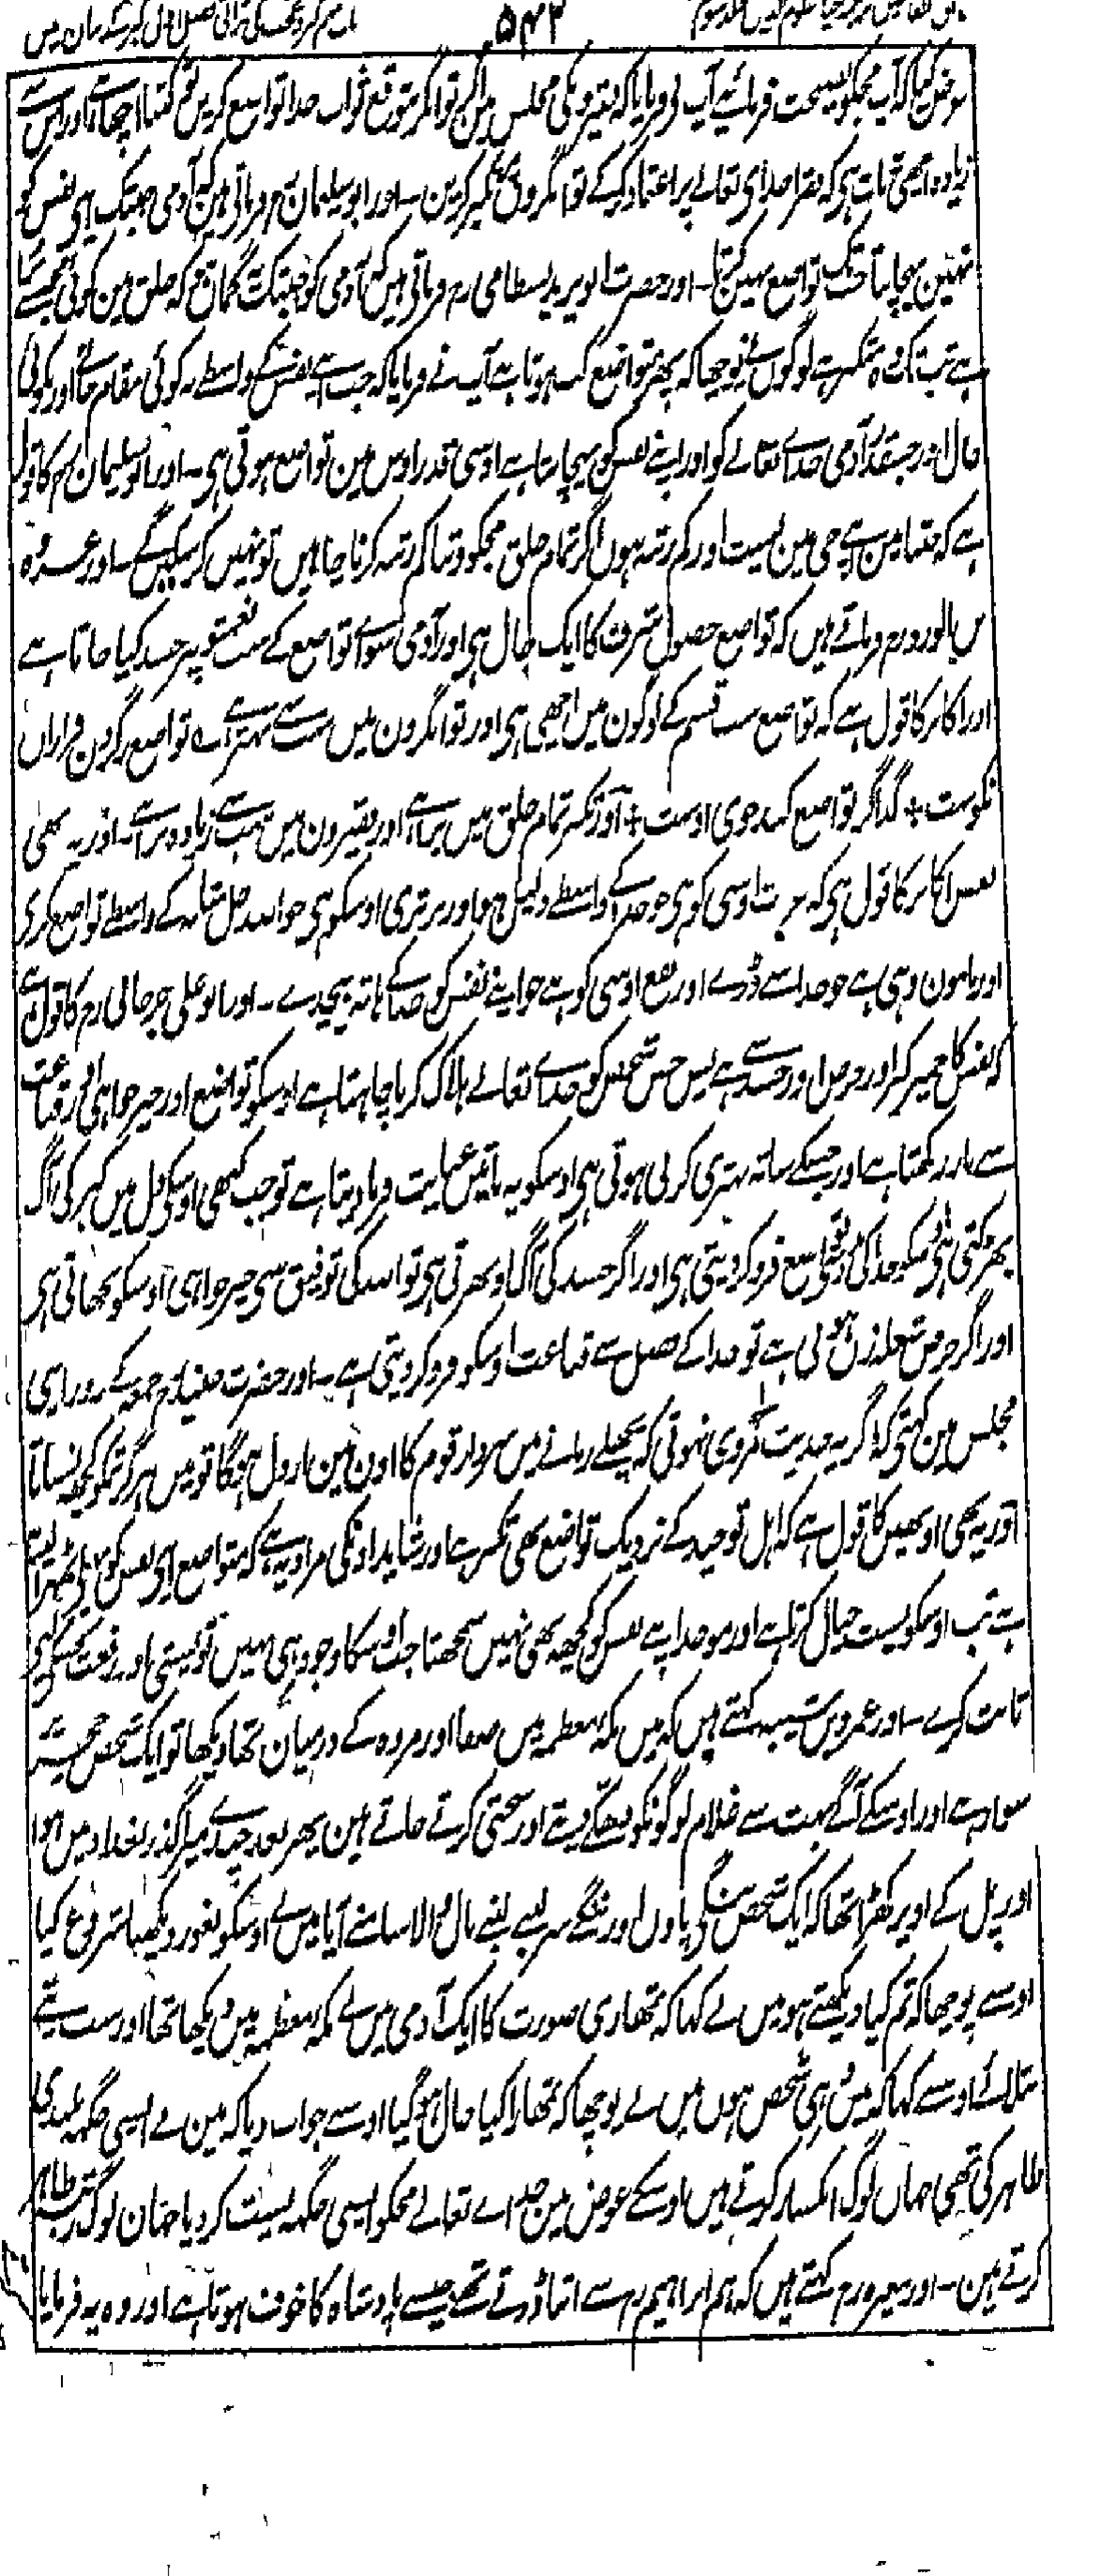 ۵۴۲
عرض کیا کہ آپ مجکو نصیحت فرمائیے آپ نے فرمایا کہ فقیرونکی مجلس میں اگر تو انگر متوقع ثواب خدا تواضع کریں تو کتنا اچھا ہے اور اس سے
زیادہ اچھی بات ہی کہ فقرا خدای تعالے پر اعتماد کر کے تو انگروں پر تکبر کرین ۔ اور ابو سلیمان رہ فرماتی ہین کہ آدمی جبتک اپنی نفس کو
نہین پہچانتا تب تک تواضع نہین کرتا ۔ اور حضرت ابو یزید بسطامی رہ فرماتی ہیں کہ آدمی کو جبتک گمان ہو کہ خلق مین کوئی مجھسے برا
ہے تب تک وہ متکبر ہے لوگوں نے پوچھا کہ پھر متواضع کب ہوتا ہے آپ نے فرمایا کہ جب اپنے نفس کے واسطے نہ کوئی مقام جانے اور نکوئی
حال اور جسقدر آدمی خدائے تعالے کو اور اپنے نفس کو پہچانتا ہے اوسی قدر اوس مین تواضع ہوتی ہی ۔ اور ابو سلیمان رہ کا قول
ہے کہ جتنا مین اپنے جی مین پست اور کم رتبہ ہوں اگر تمام خلق مجکو اوتنا کم رتبہ کرنا چاہیں تو نہیں کر سکیں گے ۔ اور عروہ
بن الورد رہ فرماتے ہیں کہ تواضع حصول شرف کا ایک جال ہی اور آدمی سوائے تواضع کے سب نعمتونپر حسد کیا جاتا ہے
اور اکابر کا قول ہے کہ تواضع سب قسم کے لوگون میں اچھی ہی اور تو انگرون میں سب سے بہتر ہے ؎ تواضع ز گردن فرازاں
نکوست + گدا گر تواضع کند خوی اوست + اور تکبر تمام خلق میں برا ہے اور فقیرون میں سب سے زیادہ برا ہے ۔ اور یہ بھی
بعض اکابر کا قول ہی کہ عزت اوسی کو ہی جو خدا کے واسطے ذلیل ہو اور برتری اوسکو ہی جو اللہ جل شانہ کے واسطے تواضع کری
اور مامون وہی ہے جو خدا سے ڈرے اور نفع اوسی کو ہے جو اپنے نفس کو خدا کے ہاتھ بیچدے ۔ اور ابو علی جرجانی رہ کا قول ہے
کہ نفس کا خمیر کبر اور حرص اور حسد سے ہے پس جس شخص کو خدائے تعالے ہلاک کرنا چاہتا ہے اوسکو تواضع اور خیر خواہی اور قناعت
سے باز رکھتا ہے اور جسکے ساتھ بہتری کرنی ہوتی ہی اوسکو یہ باتیں عنایت فرما دیتا ہے تو جب کبھی اوسکی دل میں کبر کی آگ
بھڑکتی ہی تو اوسکو خدا کی توفیق سے تواضع فرو کر دیتی ہی اور اگر حسد کی آگ اوبھرتی ہی تو اللہ کی توفیق سی خیر خواہی اوسکو بجھاتی ہی
اور اگر حرص شعلہ زن ہوتی ہے تو خدا کے فضل سے قناعت اوسکو فرو کر دیتی ہے ۔ اور حضرت جنید رہ جمعہ کے روز اپنی
مجلس مین کہتی کہ اگر یہ حدیث مروی نہوتی کہ پچھلے زمانے میں سردار قوم کا اون مین ارذل ہوگا تو میں ہرگز تمکو کچھ نہ سناتا
اور یہ بھی اونھیں کا قول ہے کہ اہل توحید کے نزدیک تواضع بھی تکبر ہے اور شاید اونکی مراد یہ ہے کہ متواضع اپنی نفس کو پہلے ٹھہرا لیتا
ہے تب اوسکو پست خیال کرتا ہے اور موحد اپنے نفس کو کچھ بھی نہیں سمجھتا جب اوسکا وجود ہی نہیں تو پستی اور رفعت کسکو
ثابت کرے ۔ اور عمرو بن شیبہ کہتے ہیں کہ میں مکہ معظمہ میں صفا اور مروہ کے درمیان تھا دیکھا تو ایک شخص خچر پر
سوار ہے اور اوسکے آگے بہت سے غلام لوگونکو دھکے دیتے اور سختی کرتے جاتے ہین پھر بعد چندے میرا گذر بغداد میں ہوا
اور پل کے اوپر کھڑا تھا کہ ایک شخص ننگے پاوں اور ننگے سر لمبے لمبے بال والا سامنے آیا میں نے اوسکو بغور دیکھنا شروع کیا
اوسنے پوچھا کہ تم کیا دیکھتے ہو میں نے کہا کہ تمھاری صورت کا ایک آدمی میں نے مکہ معظمہ میں دیکھا تھا اور سب پتے
بتلائے اوسنے کہا کہ میں وہی شخص ہوں میں نے پوچھا کہ تمھارا کیا حال ہو گیا اوسنے جواب دیا کہ مین نے ایسی جگہ بلندی
ظاہر کی تھی جہاں لوگ انکسار کرتے ہیں اوسکے عوض مین خدائے تعالے نے مجکو ایسی جگہ پست کر دیا جہان لوگ
کرتے ہین ۔ اور مغیرہ رہ کہتے ہیں کہ ہم ابراہیم رہ سے اتنا ڈرتے تھے جیسے پادشاہ کا خوف ہوتا ہے اور وہ یہ فرمایا